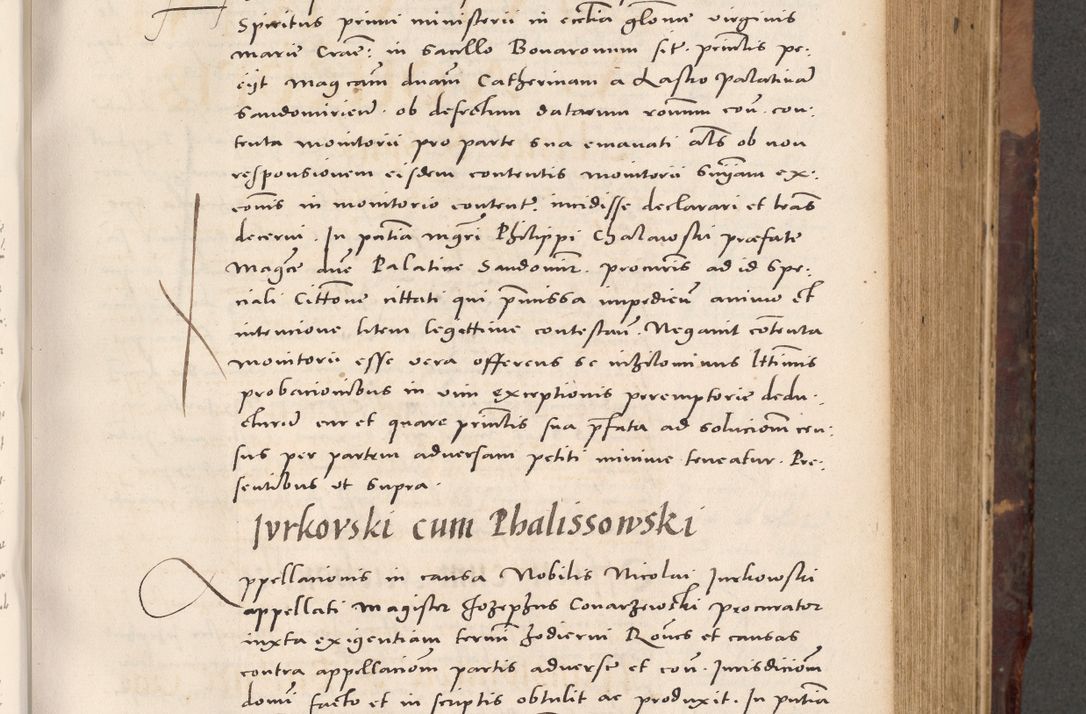 Spiritus primi ministerii in ecclia glõme virginis
marie Craē: in sacello Bonaronum sit. princlis pe:
eijt magcam dnam Catherinam à Lasko palatinā
Sandomirien̄. ob defectum datarum ronum con̄. con:
tenta monitorii pro parte sua emanati actis ob non
responsionem eisdem contentis monitorii suniam ex:
comis in monitorio content̄. incidisse declarari et lras
decerni. In pñtia mgri Philippi Chalawski præfate
Magce dne Palatine Sandomir. procuris ad id spe:
ciali Cittone cittati qui p̄missa impedien̄ animo et
intencione litem legittime contestan̄. Negauit cõtenta
monitorii esse vera offerens se nihilominus lttimis
probacionibus in vim exceptionis peremptorie dedu:
cturū cur et quare princlis sua p̄fata ad solucionē cen:
sus per partem adversam petiti minime teneatur. Pre:
sentibus vt supra.
Jvrkovski cum Phalissowski
Appellacionis in causa Nobilis Nicolai Jurkowski
appellati magister Jozephus Conarzewski procurator
iuxta exigentiam termī hodierni Rones et causas
contra appellacionē partis adverse et con̄. Jurisdicionē
domī facto et in scriptis obtulit ac produxit. In pñtia